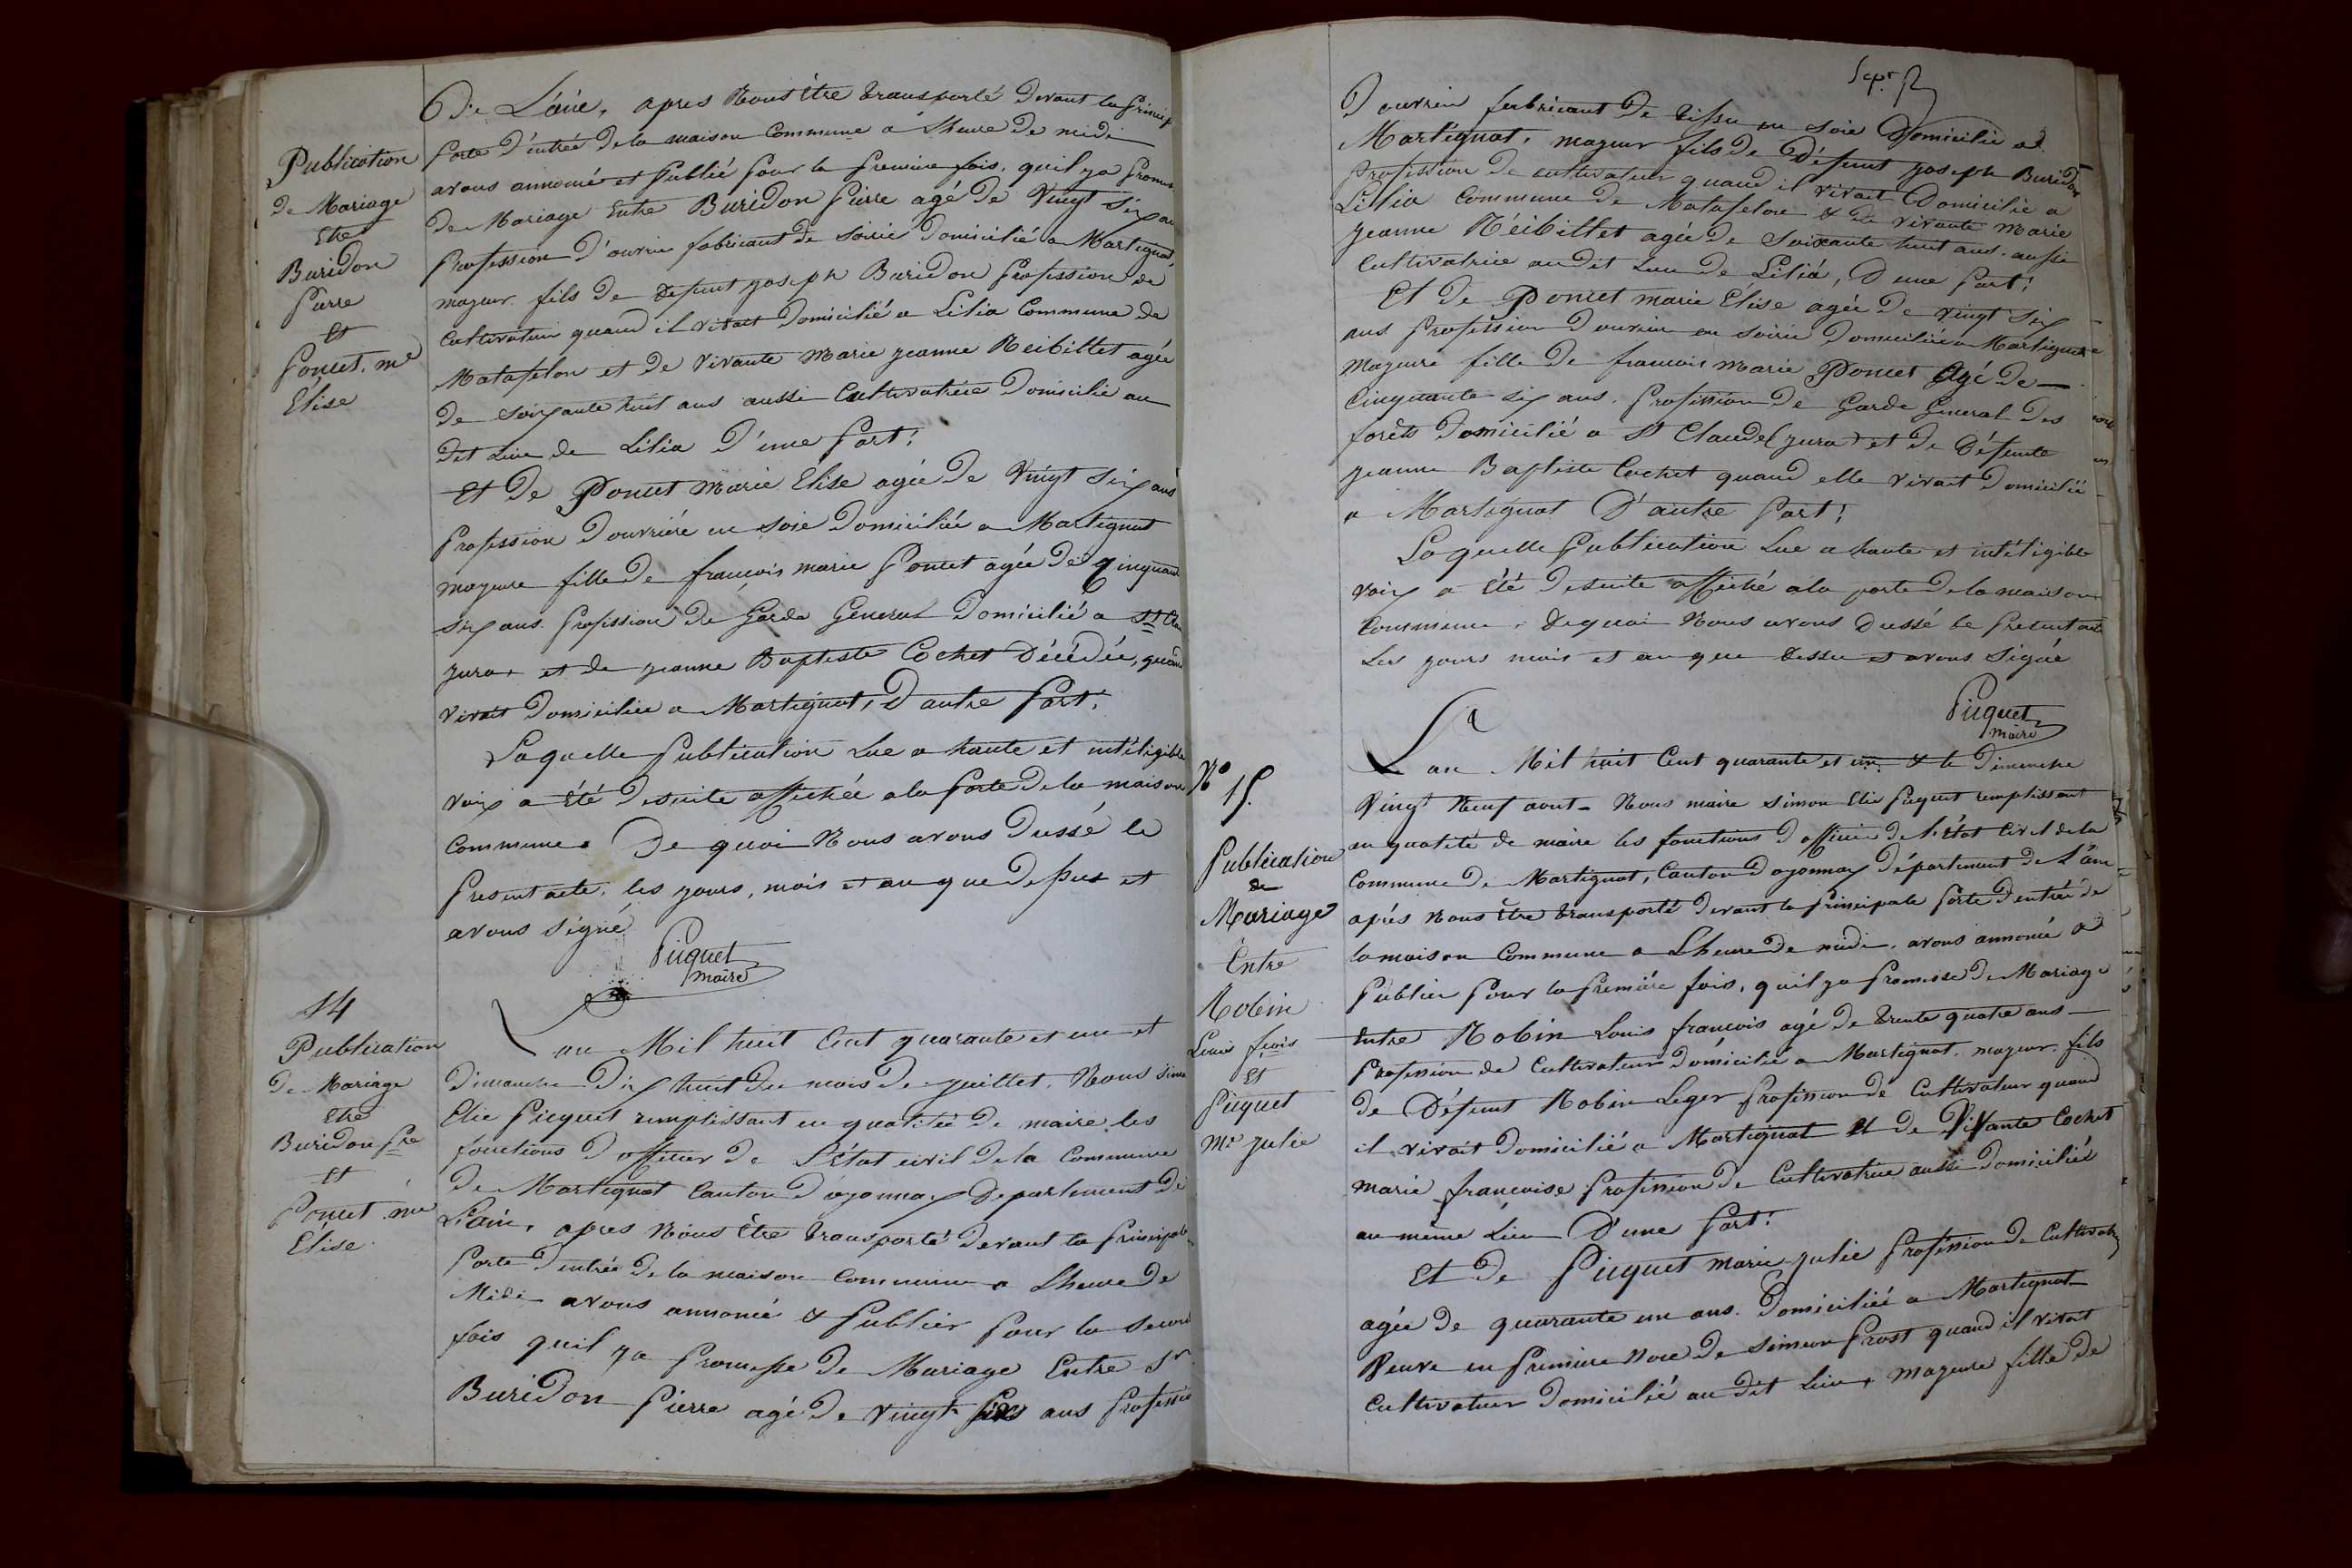 Publication
de Mariage
Etre
Buridon
Pierre
Et
Poncet. me
Élise
De L'ain, apres Nous être transporté devant la princip
porte d'entrée de la maison Commune a L'heure de midi
avons annoncé et Publié pour la premiere fois, quil ya promes
de Mariage Entre Buridon Pierre agé de Vingt Six an
Profession D'ouvrier fabricant de soirie Domicilié a Martignat
majeur. fils de defunt joseph Buridon profession de
Cultivateur quand il vivait Domicilié a Lilia Commune de
Matafelon et de Vivante Marie jeanne Reibillet agée
de soixante huit ans aussi Cultivatrice Domicilie au
dit Lieu de Lilia D'une part;
Et De Poncet Marie Elise agée De Vingt Six ans
Profession D'ouvriére en soie Domiciliée a Martignat
majeure fille De françois marie Poncet agée De Cinquant
six ans. profession De Garde General Domicilié a St Clau
jura, et de jeanne Baptiste Cochet Décédée, quand
vivait Domiciliée a Martignat, D'autre Part;
Laquelle publication Lue a haute et intéligible
voix a été desuite affichée a la Porte de la maison
Commune. De quoi Nous avons Dussé le
Present acte, les jours, mois et an que dessus et
avons signé
Piquet
maire
14
Publication
de Mariage
Etre
Buridon Pre
Et
Poncet. me
Élise
Lan Mil huit Cent quarante et un et
Dimanche Dix huit du mois de juillet. Nous Simo
Elie Piquet remplissant en qualitée de maire les
fonctions d'officier de L'état civil de la Commune
De Martignat Canton d'oyonnax Departement De
L'ain, apres Nous être transporté devant la principale
Porte D'entrée de la maison Commune a L'heure de
Midi avons annoncé & Publier pour la second
fois quil ya promesse de Mariage Entre Sr
Buridon Pierre agé De vingt six ans Profession
D'ouvrier fabricant De tissu en soie Domicilie a
Martignat, majeur fils de Défunt joseph Buridon
Profession De cultivateur quand il vivait Domicilie a
Lilia Commune de Matafelon & de vivante Marie
jeanne Réibillet agée De soixante huit ans. aussi
Cultivatrice au dit Lieu de Lilia, D'une part;
Et De Poncet marie Élise agée De vingt six
ans Profession D'ouvrier en soirie Domiciliée a Martignat
Majeure fille De francois marie Poncet Agé De
Cinquante six ans. Profession De Garde General Des
forêts Domicilié a St Claude (jura) et de Défunte
jeanne Baptiste Cochet quand elle vivait Domicilié
a Martignat D'autre Part;
Laquelle Publication Lue a haute et intéligible
voix a été desuite affiché a la porte de la maison
Commune, dequoi Nous avons Dussé le Present acte
Les jours mois et an que dessu et avons Signé
Piquet
maire
No 15.
Publication
de
Mariage
Entre
Robin
Louis fçois
Et
Piquet
Me julie
Lan Mil huit Cent quarante et un & le Dimanche
Vingt Neuf aout. Nous maire simon Elie Piquet remplissant
en qualité de maire les fonctions D'officier de L'état Civil de la
Commune de Martignat, Canton D'oyonnax Département de L'ain
aprés Nous être transporté devant la principale porte D'entrée de
la maison Commune a L'heure de midi. avons annoncé &
Publier pour la première fois, quil ya promesse de Mariage
Entre Robin Louis françois agé de trente quatre ans
Profession de Cultivateur Domicilié a Martignat. majeur. fils
de Défunt Robin Leger Profession de Cultivateur quand
il vivait Domicilié a Martignat Et de Vivante Cochet
Marie françoise Profession De Cultivatrice aussi Domiciliée
au même Lieu D'une part;
Et De Piquet marie julie Profession de Cultivatr
agée de quarante un ans. Domiciliée a Martignat
Veuve en premiere Noce De simeon Prost quand il vivait
Cultivateur Domicilié au dit Lieu, majeure fille de